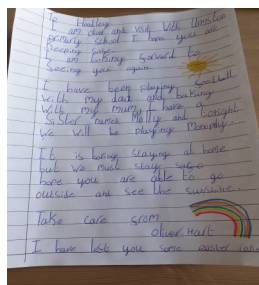 To Hadley
I am
primary school I hope you are
keeping safe.
I am looking forward to
seeing you again.
I have been playing football
with my dad and baking
with my mum. I have a
sister named Molly and tonight
we will be playing Monoply.
It is boring staying at home
but we must stay safe
hope you are able to go
outside and see the sunshine.
Take care from
Oliver Hart
I have left you some easter